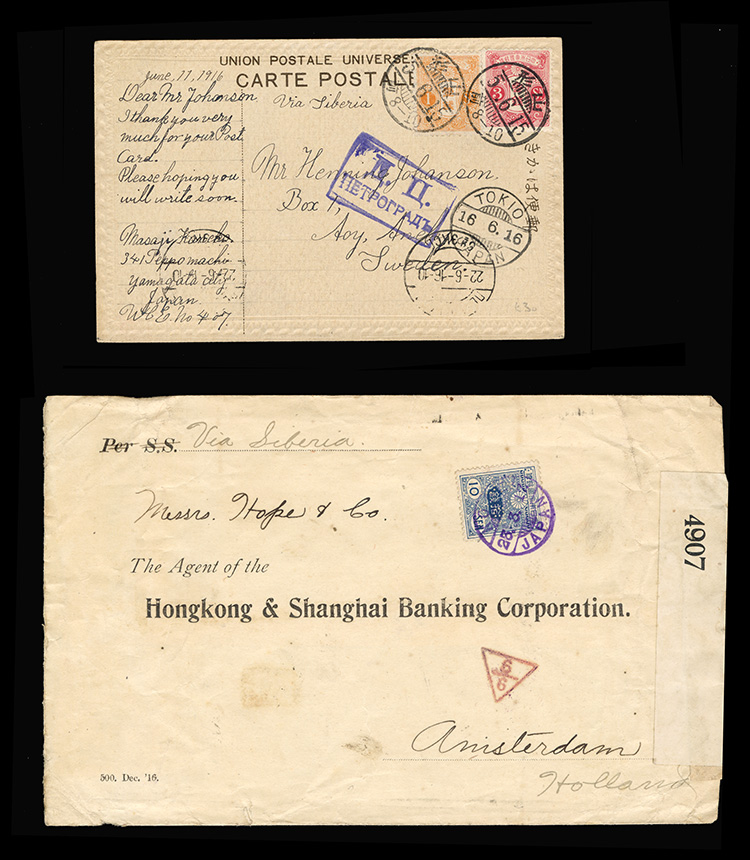 UNION POSTALE UNIVERSE
CARTE POSTALE
Via Siberia
June, 11, 1916
Dear Mr Johanson
I thank you very
much for your Post
Card.
Please hoping you
will write soon.
Masaji Kaneko.
341 Teppo machi
Yamagata city
Japan.
W.C.E. No 407.
Mr Henning Johanson.
Box 1,
Sweden.
きかは便郵
5.6.15
8-10
3
Д. Ц.
ПЕТРОГРАДЪ
TOKIO
16.6.16
JAPAN
22.6-16-10
Per S.S. Via Siberia.
Messrs. Hope & Co.
The Agent of the
Hongkong & Shanghai Banking Corporation.
Amsterdam
Holland
500. Dec. '16.
10
JAPAN
4907